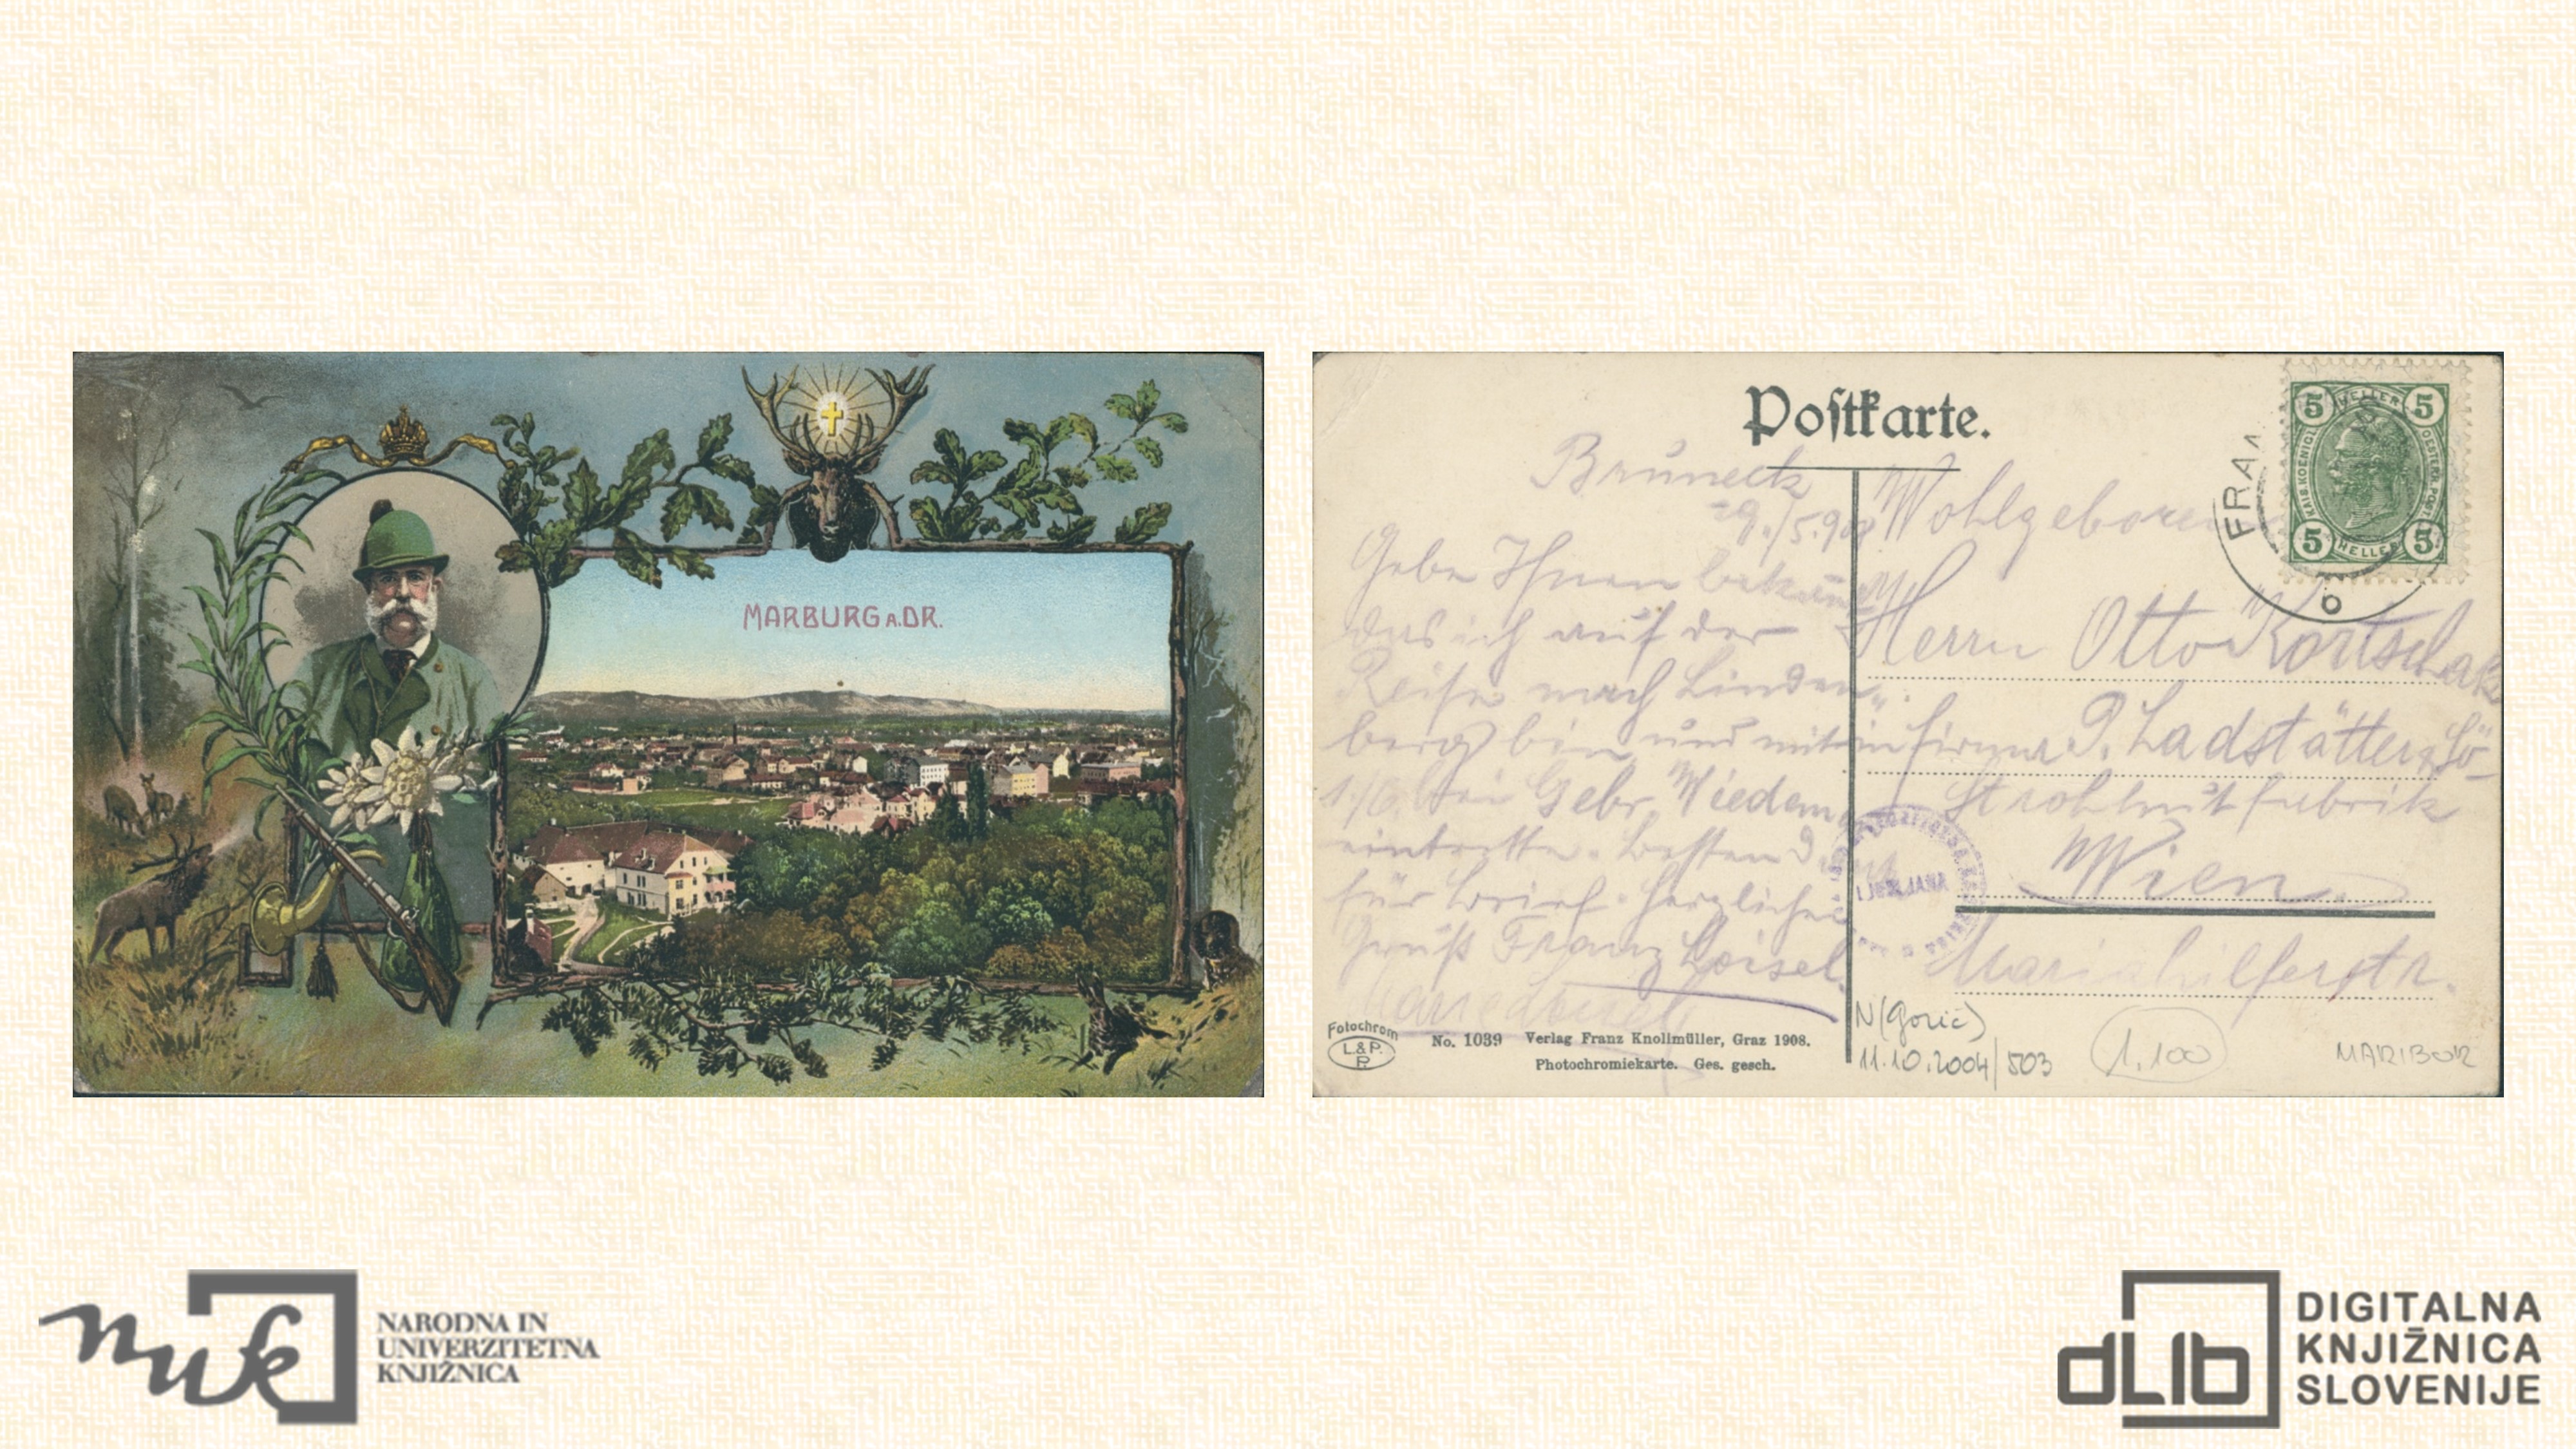 MARBURG A. DR.
Postkarte.
Bruneck
29./5.908
Gebe Ihnen bekannt
das ich auf der
Reise nach Linden„
berg bin und mit
1./6. bei Gebr. Wiedem
eintrette. Besten D
für Brief. Herzlichen
Gruß Franz Loisel.
Marie Loisel
Wohlgeboren
Herrn Otto Kortschak
in firma P. Ladstätter & Sö
Strohhut fabrik
Wien
Mariahilferstr.
FRA
KAIS. KOENIGL. OESTERR. POST
5 HELLER 5
5 HELLER 5
LJUBLJANA
Fotochrom
L.&P.
P.
No. 1039
Verlag Franz Knollmüller, Graz 1908.
Photochromiekarte. Ges. gesch.
N (Gorič)
11.10.2004/503
1.100
MARIBOR
nuk
NARODNA IN
UNIVERZITETNA
KNJIŽNICA
dLib
DIGITALNA
KNJIŽNICA
SLOVENIJE